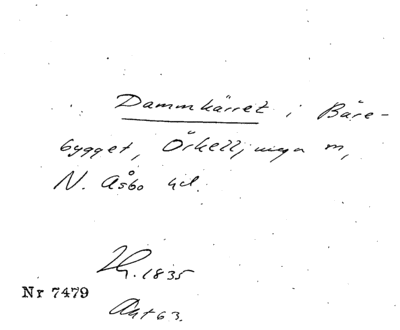 Dammkärret i Båre-
bygget, Örkelljunga m,
N. Åsbo hd.
1835
Nr 7479
Akt 63.